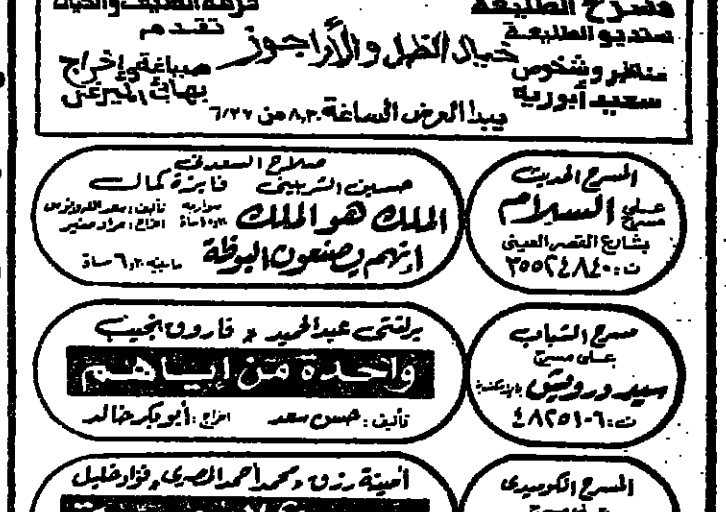 مسرح الطليعة
ستديو الطليعة
تقدم
خيال الظل والأراجوز
مناظر وشخوص
سعيد أبورية
صياغة وإخراج
بهائى الميرغنى
يبدأ العرض الساعة ٨,٣٠ من ٦/٢٧
المسرح الحديث
على مسرح السلام
بشارع القصر العينى
ت: ٣٥٥٢٤٨٤٠
صلاح السعدنى
حسين الشربينى فايزة كمال
الملك هو الملك
سواريه
تأليف: سعد الله ونوس
اخراج: مراد منير
إنهم يصنعون البوظة
ماتينيه ٦,٣٠ مساء
مسرح الشباب
على مسرح
سيد درويش بالاسكندرية
ت: ٤٨٢٥١٠٦
برلنتى عبدالحميد * فاروق نجيب
واحدة من إياهم
تأليف: حسن سعد اخراج: أبوبكر خالد
المسرح الكوميدى
أمينة رزق * محمد أحمد المصرى * فؤاد خليل